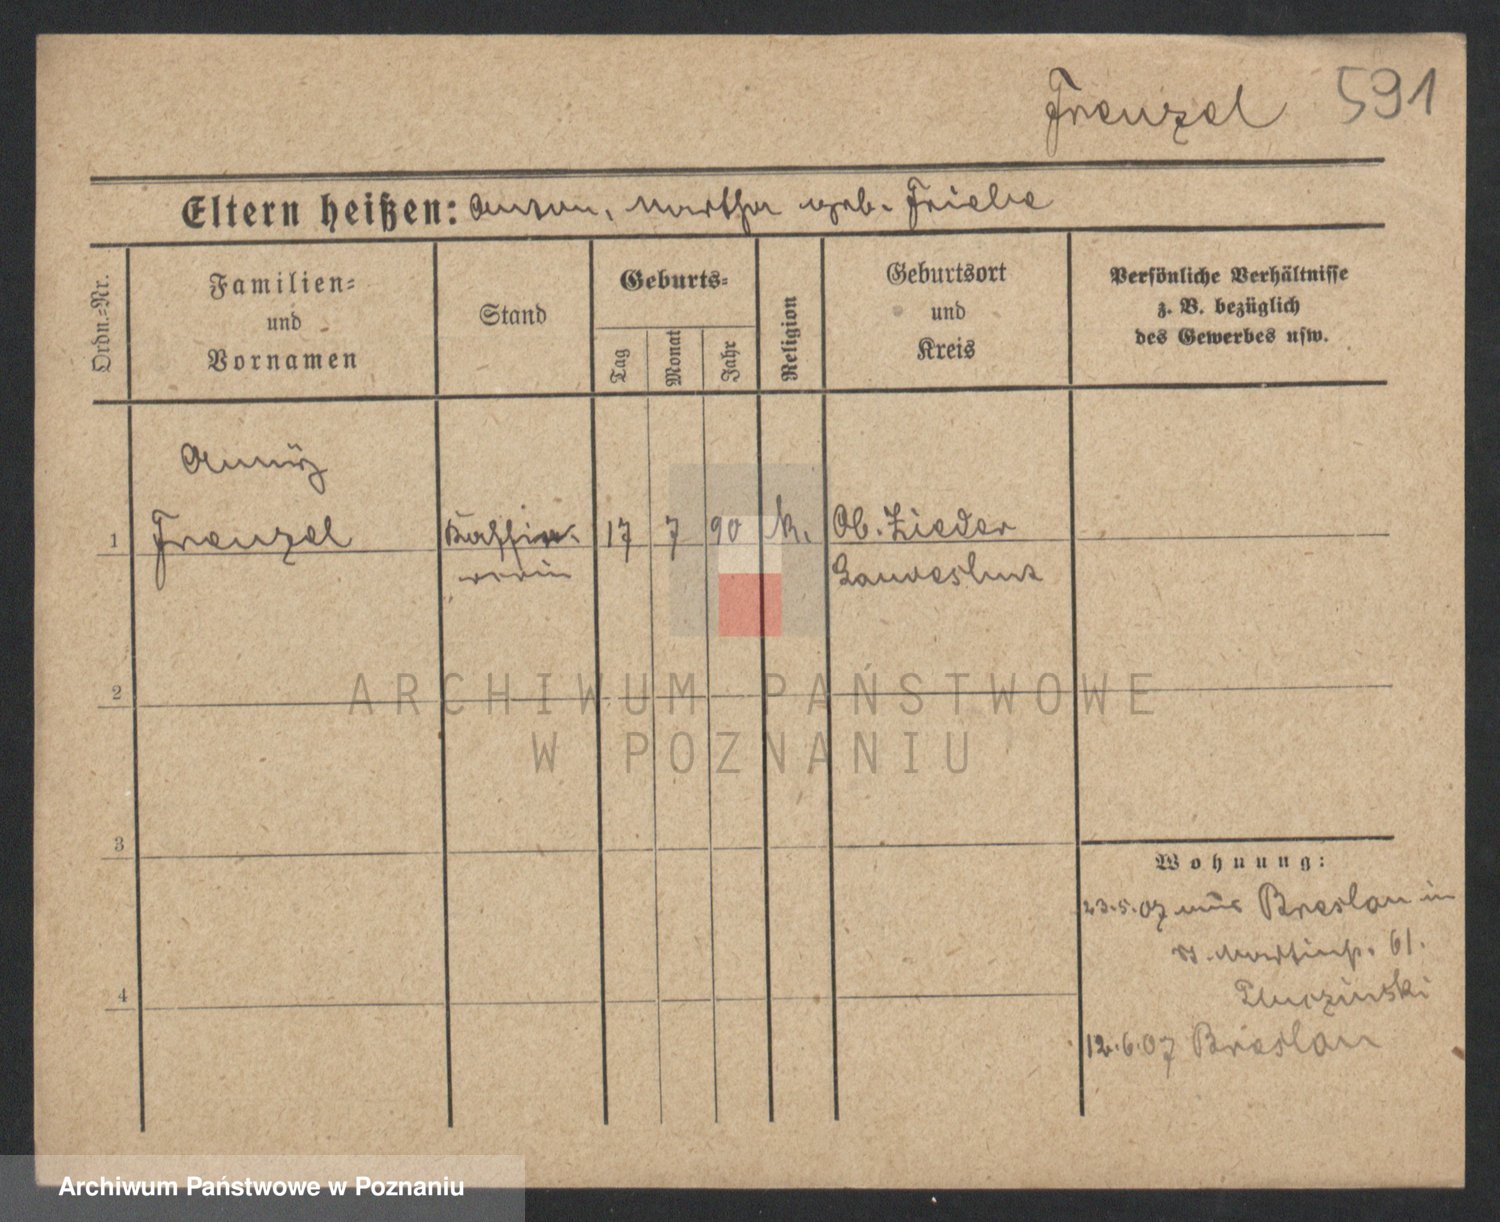 Frenzel 591
Eltern heißen: Anton, Martha geb. Friebe
Ordn.=Nr.
Familien=
und
Vornamen
Stand
Geburts=
Tag
Monat
Jahr
Religion
Geburtsort
und
Kreis
Persönliche Verhältnisse
z. B. bezüglich
des Gewerbes usw.
1
Frenzel
17 7 90 k.
Ob. Zieder
Landeshut
2
3
4
Wohnung:
23.5.07 aus Breslau in
St. Martinstr. 61.
12.6.07 Breslau
ARCHIWUM PAŃSTWOWE
W POZNANIU
Archiwum Państwowe w Poznaniu